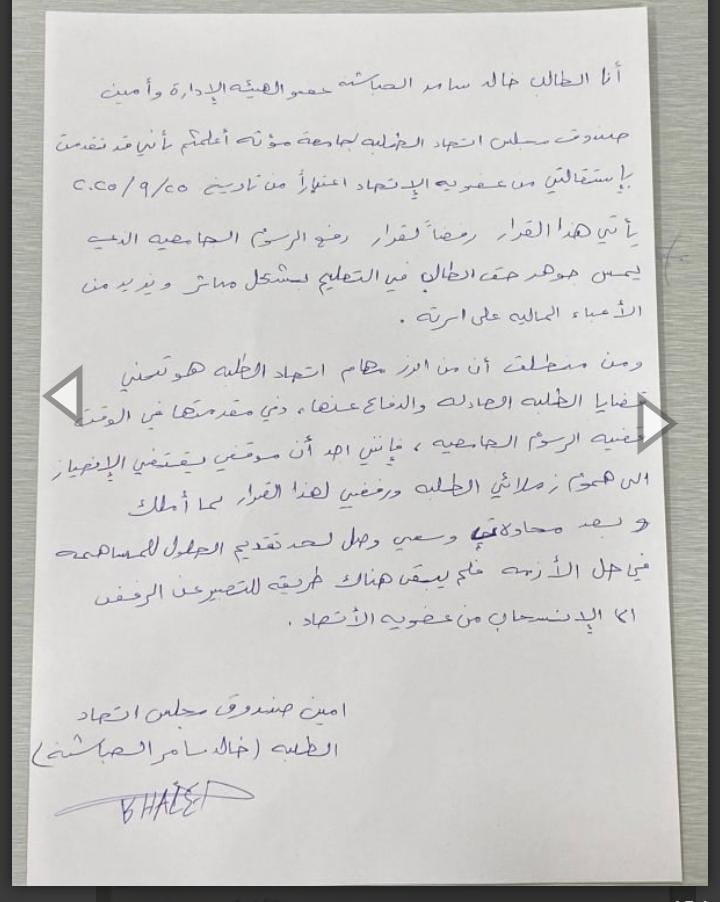 أنا الطالب خالد سامر الصباشنه عضو الهيئه الإدارة وأمين
صندوق مجلس اتحاد الطلبه لجامعة مؤته أعلمكم بأني قد تقدمت
بإستقالتي من عضويه الإتحاد اعتباراً من تاريخ ٢٠٢٥/٩/٢٥
يأتي هذا القرار رفضاً لقرار رفع الرسوم الجامعيه الذي
يمس جوهر حق الطالب في التعليم بشكل مباشر ويزيد من
الأعباء الماليه على اسرته .
ومن منطلق أن من ابرز مهام اتحاد الطلبه هو تبني
قضايا الطلبه العادله والدفاع عنها، وفي مقدمتها في الوقت
قضيه الرسوم الجامعيه ، فإنني اجد أن موقفي يقتضي الإنحياز
الى هموم زملائي الطلبه ورفضي لهذا القرار بما أملك
و بعد محاولاتي وسعي وصل لحد تقديم الحلول للمساهمه
في حل الأزمه فلم يبقى هناك طريقه للتعبير عن الرفض
الا الإنسحاب من عضويه الأتحاد .
امين صندوق مجلس اتحاد
الطلبه (خالد سامر الصباشنة)